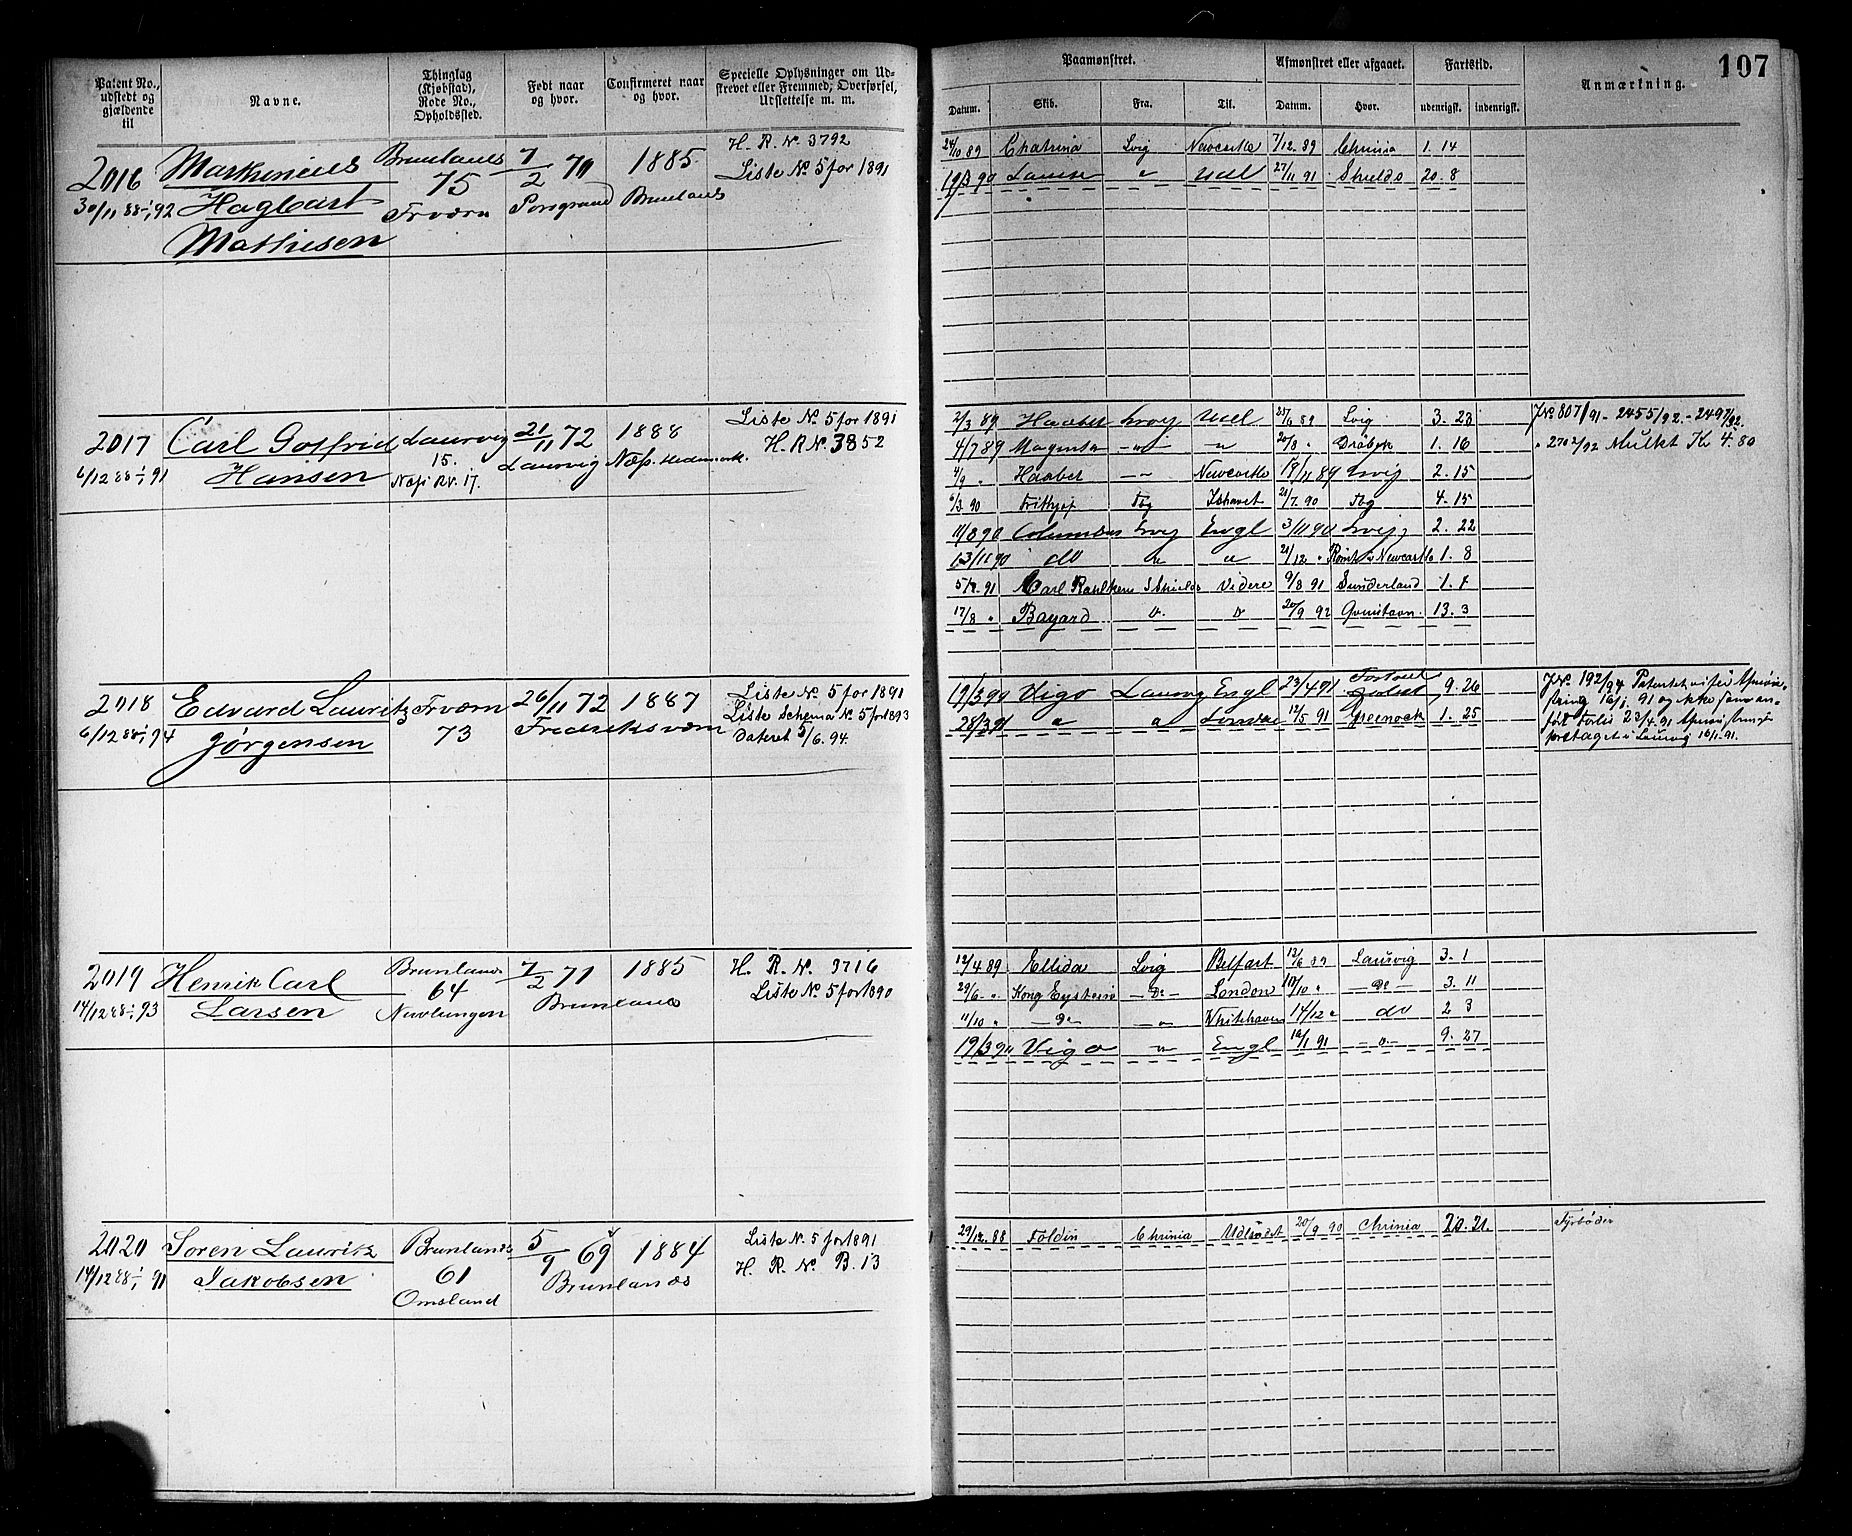 107
Patent No., udstedt og gjældende til
Navne.
Thinglag (Kjøbstad), Rode No., Opholdssted.
Født naar og hvor.
Confirmeret naar og hvor.
Specielle Oplysninger om Udskrevet eller Fremmed, Overførsel, Udslettelse m. m.
Paamønstret.
Afmønstret eller afgaaet.
Fartstid.
Anmærkning.
Datum. Skib. Fra. Til. Datum. Hvor. udenrigsk. indenrigsk.
2016
30/11 88-1/1 92
Hagbart
Mathisen
Brunlanes
75
Frværn
7/2 70
Porsgrund
1885
Brunlanes
H. R. No 3792
Liste No. 5 for 1891
24/10 89 Chatrina Lvig Newcastle 7/12 89 Chrinia 1. 14
19/3 90 " Udl 27/11 91 Shields 20. 8
2017
6/12 88-1/1 91
Carl Gotfried
Hansen
Laurvig
15.
Næs Rv. 17.
21/11 72
Laurvig
1888
Næs. Hedemark.
Liste No. 5 for 1891
H. R No. 3852
2/3 89 Haabet Lvig Udl 25/6 89 Lvig 3. 23
4/7 89 Magenta — " — " 20/8 " Drøbak 1. 16
4/9 " Haabet — " — Newcastle 19/11 89 Lvig 2. 15
6/3 90 Frithjof Tbg Ishavet 21/7 90 Tbg 4. 15
11/8 90 Columbus Lvig Engl 3/11 90 Lvig 2. 22
13/11 90 do " " 21/12 " Rømt i Newcastle 1. 8
5/7 91 Carl S Shields Videre 9/8 91 Sunderland 1. 1
17/8 " Bayard " " 20/9 92 13. 3
JNo 807/91 - 2455/92. - 2497/92.
" 2702/92 Mulkt Kr 4.80
2018
6/12 88-1/1 94
Edvard Lauritz
Jørgensen
Frværn
73
26/11 72
Fredriksværn
1887
Liste No. 5 for 1891
Liste Schema No. 5 for 1893
Dateret 5/6. 94.
19/3 90 Vigo Laurvig Engl 23/4 91 Forliset 9. 26
28/3 91 " " London 12/5 91 Greenock 1. 25
JNo. 192/94 Patentet viser Afmøn-
string 16/1 91 og ikke som an-
ført Forlis 23/4. 91 Afmønstringen
foretaget i Laurvig 16/1 91.
2019
14/12 88-1/1 93
Henrik Carl
Larsen
Brunlanes
64
Nevlungen
7/2 71
Brunlanes
1885
H. R. No. 3716
Liste No. 5 for 1890
12/4 89 Ellida Lvig Belfast 12/6 89 Laurvig 3. 1
29/6 - " Kong Eystein — Do — London 10/10 " — Do — 3. 11
11/10 " — Do — — " — Whitehaven 14/12 " do 2 3
19/3 90 Vigo " Engl 16/1 91 — " — 9. 27
2020
14/12 88-1/1 91
Søren Lauritz
Jakobsen
Brunlanes
61
Omsland
5/9 69
Brunlanes
1884
Liste No. 5 for 1891
H. R. No B. 13
29/12. 88 Foldin Chrinia Udlandet 20/9 90 Chrinia 20. 21.
Fyrbøder